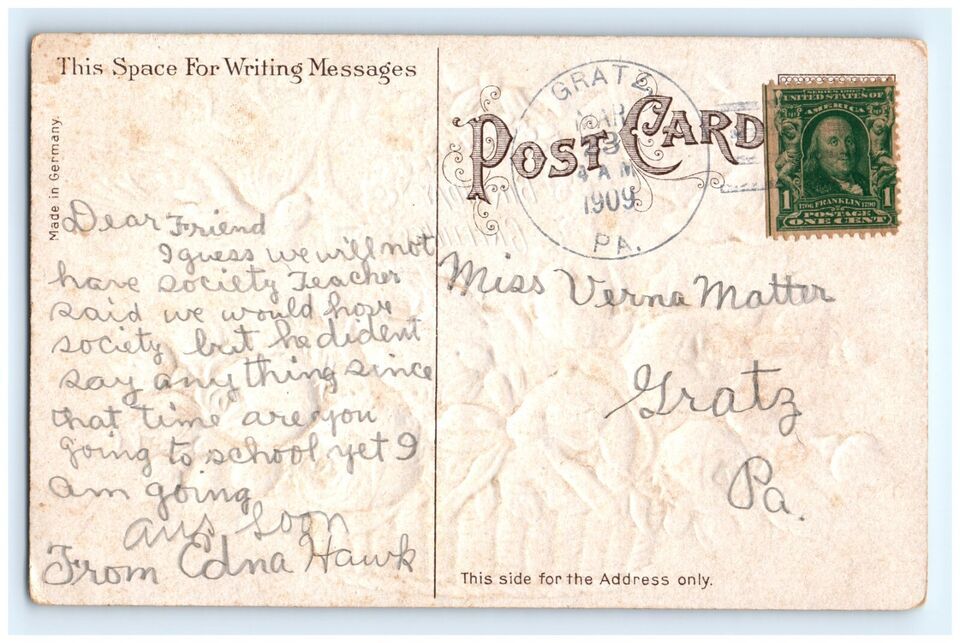 This Space For Writing Messages
Made in Germany.
Dear Friend
I guess we will not
have society Teacher
said we would have
society but he dident
say any thing since
that time are you
going to school yet I
am going
ans soon
From Edna Hawk
POST CARD
GRATZ
MAR
23
4 AM
1909
PA.
SERIES 1902
UNITED STATES OF
AMERICA
1706 FRANKLIN 1790
1 POSTAGE 1
ONE CENT
Miss Verna Matter
Gratz
Pa.
This side for the Address only.